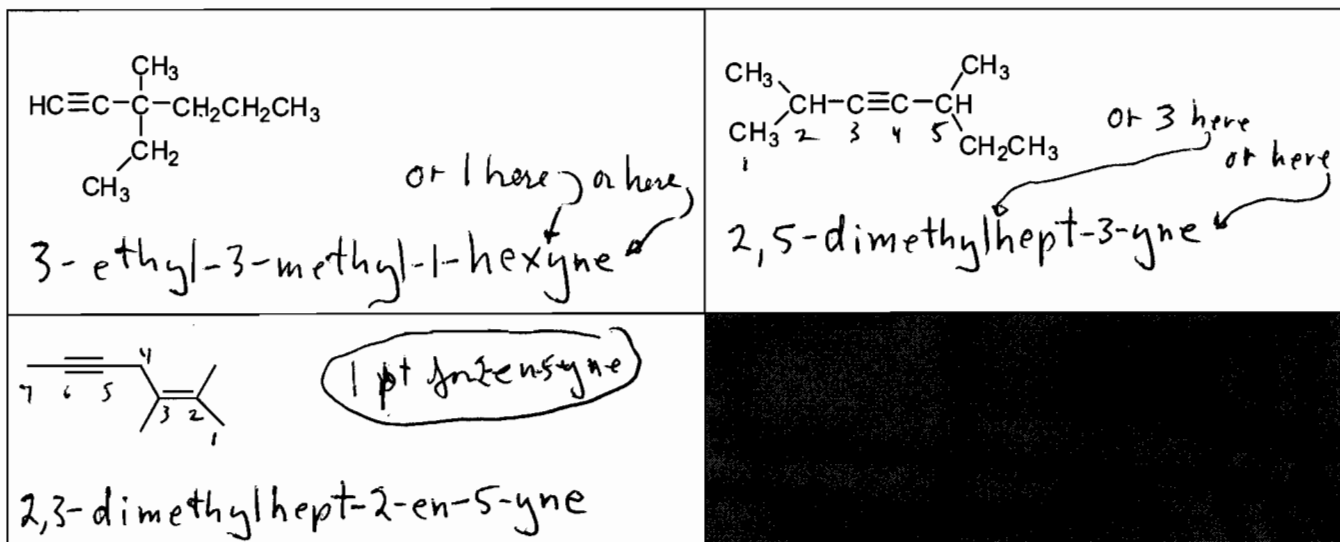 CH3
HC≡C-C-CH2CH2CH3
CH2
CH3
or 1 here or here
3-ethyl-3-methyl-1-hexyne
CH3 CH3
CH-C≡C-CH
CH3 2 3 4 5 CH2CH3
1
or 3 here
or here
2,5-dimethylhept-3-yne
7 6 5 4 3 2 1
1 pt for 2en5yne
2,3-dimethylhept-2-en-5-yne